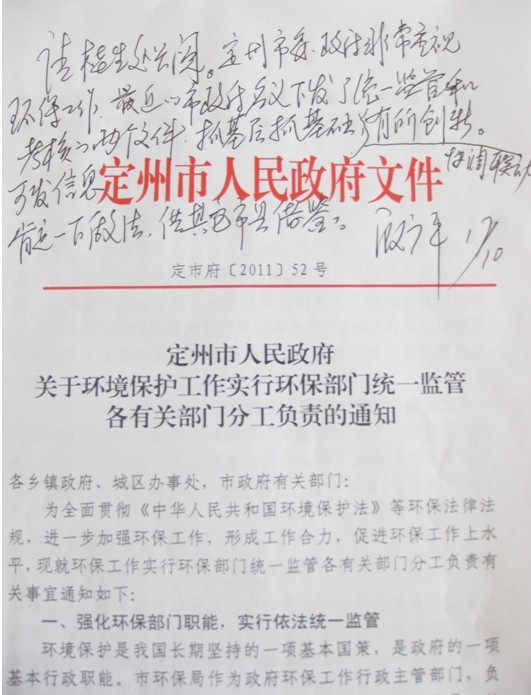 请桂生处长阅。定州市委、政府非常重视
环保工作，最近以市政府名义下发了统一监管和
考核的两个文件，抓基层抓基础有所创新。
可发信息
肯定一下做法，供其它市县借鉴。
1/10
定州市人民政府文件
定市府〔2011〕52号
定州市人民政府
关于环境保护工作实行环保部门统一监管
各有关部门分工负责的通知
各乡镇政府、城区办事处，市政府有关部门：
为全面贯彻《中华人民共和国环境保护法》等环保法律法
规，进一步加强环保工作，形成工作合力，促进环保工作上水
平，现就环保工作实行环保部门统一监管各有关部门分工负责有
关事宜通知如下：
一、强化环保部门职能，实行依法统一监管
环境保护是我国长期坚持的一项基本国策，是政府的一项
基本行政职能。市环保局作为政府环保工作行政主管部门，负